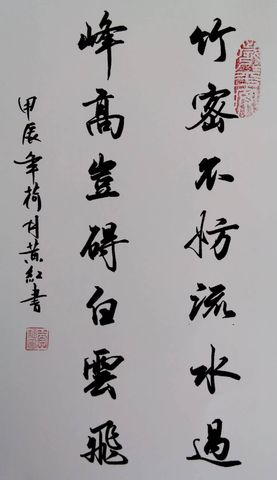 竹密不妨流水過
峰高豈碍白雲飛
甲辰年荷月黄红書